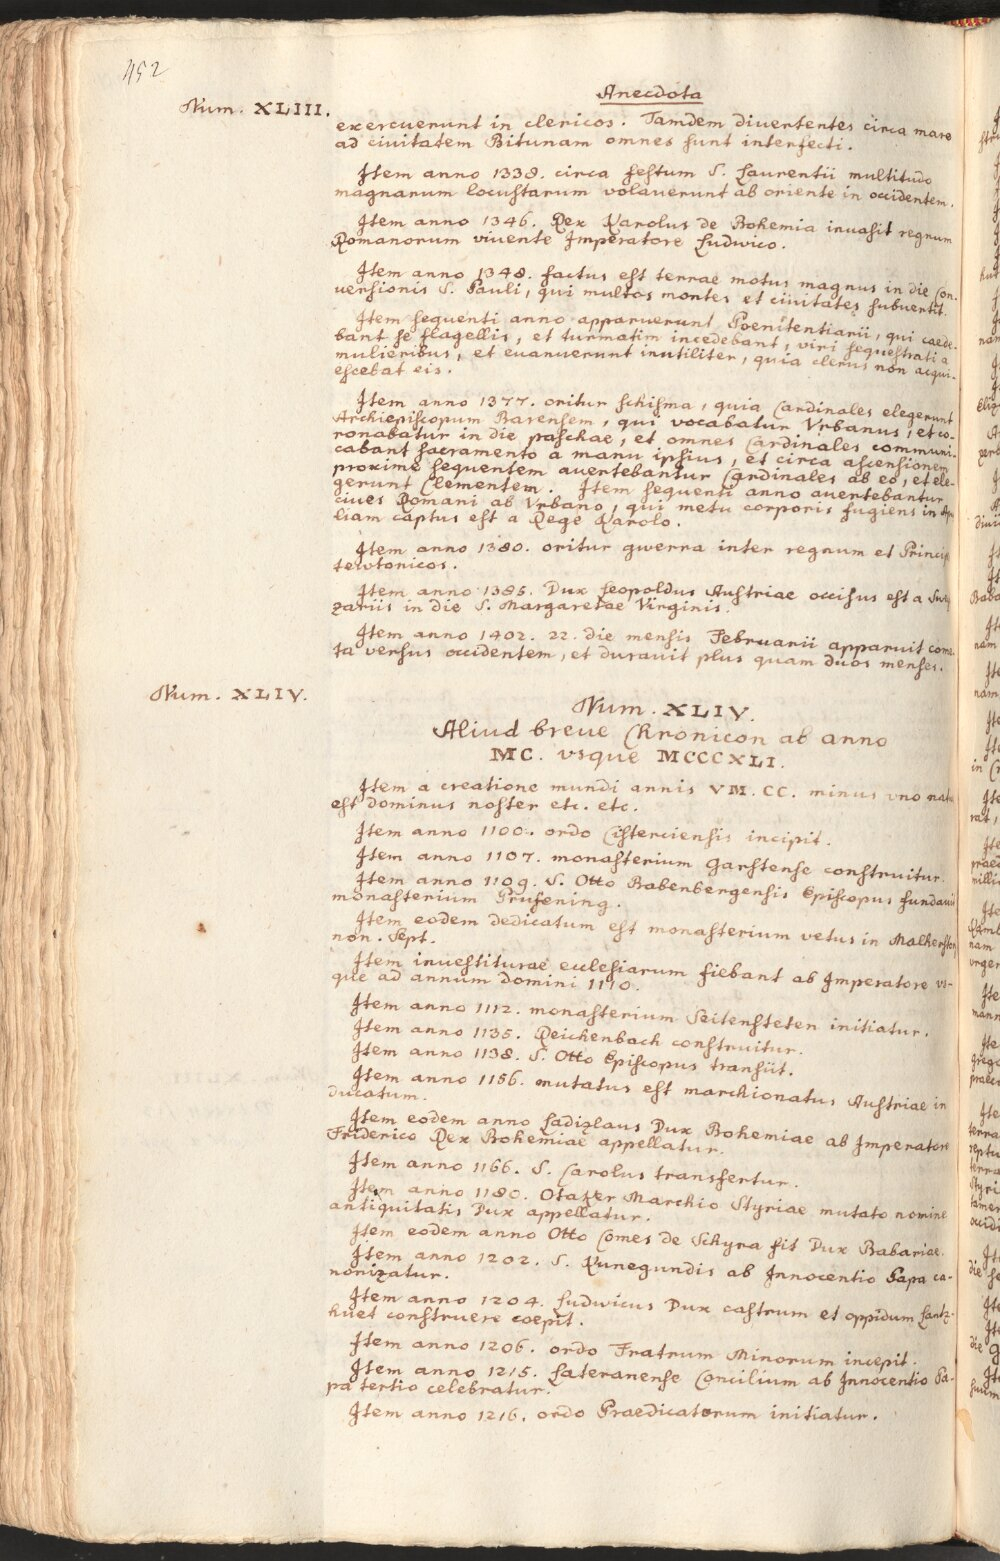 452
Anecdota
Num. XLIII.
exercuerunt in clericos. Tamdem diuertentes circa mare
ad ciuitatem Bitunam omnes sunt interfecti.
Item anno 1338. circa festum S. Laurentii multitudo
magnarum locustarum volauerunt ab oriente in occidentem.
Item anno 1346. Rex Karolus de Bohemia inuasit regnum
Romanorum viuente Imperatore Ludwico.
Item anno 1348. factus est terrae motus magnus in die Con-
uersionis S. Pauli, qui multos montes et ciuitates subuertit.
Item sequenti anno apparuerunt Poenitentiarii, qui caede-
bant se flagellis, et turmatim incedebant, viri sequestrati a
mulieribus, et euanuerunt inutiliter, quia clerus non acqui-
escebat eis.
Item anno 1377. oritur schisma, quia Cardinales elegerunt
Archiepiscopum Barensem, qui vocabatur Vrbanus, et co-
ronabatur in die paschae, et omnes Cardinales communi-
cabant sacramento a manu ipsius, et circa ascensionem
proxime sequentem auertebantur Cardinales ab eo, et ele-
gerunt Clementem. Item sequenti anno auertebantur
ciues Romani ab Vrbano, qui metu corporis fugiens in Apu
liam captus est a Rege Karolo.
Item anno 1380. oritur gwerra inter regnum et Princip
tewtonicos.
Item anno 1385. Dux Leopoldus Austriae occisus est a Swi
zariis in die S. Margaretae Virginis.
Item anno 1402. 22. die mensis Februarii apparuit come-
ta versus occidentem, et durauit plus quam duos menses.
Num. XLIV.
Num. XLIV.
Aliud breue Chronicon ab anno
MC. vsque MCCCXLI.
Item a creatione mundi annis VM. CC. minus vno natu
est dominus noster etc. etc.
Item anno 1100. ordo Cisterciensis incipit.
Item anno 1107. monasterium Garstense construitur.
Item anno 1109. S. Otto Babenbergensis Episcopus fundauit
monasterium Prufening.
Item eodem dedicatum est monasterium vetus in Malhersten
non. Sept.
Item inuestiturae ecclesiarum fiebant ab Imperatore vs-
que ad annum domini 1110.
Item anno 1112. monasterium Seitensteten initiatur.
Item anno 1135. Reichenbach construitur.
Item anno 1138. S. Otto Episcopus transiit.
Item anno 1156. mutatus est marchionatus Austriae in
ducatum.
Item eodem anno Ladizlaus Dux Bohemiae ab Imperatore
Friderico Rex Bohemiae appellatur.
Item anno 1166. S. Carolus transfertur.
Item anno 1180. Otaker Marchio Styriae mutato nomine
antiquitatis Dux appellatur.
Item eodem anno Otto Comes de Schyra fit Dux Babariae.
Item anno 1202. S. Kunegundis ab Innocentio Papa ca-
nonizatur.
Item anno 1204. Ludwicus Dux castrum et oppidum Lantz-
huet construere coepit.
Item anno 1206. ordo Fratrum Minorum incepit.
Item anno 1215. Lateranense Concilium ab Innocentio Pa-
pa tertio celebratur.
Item anno 1216. ordo Praedicatorum initiatur.